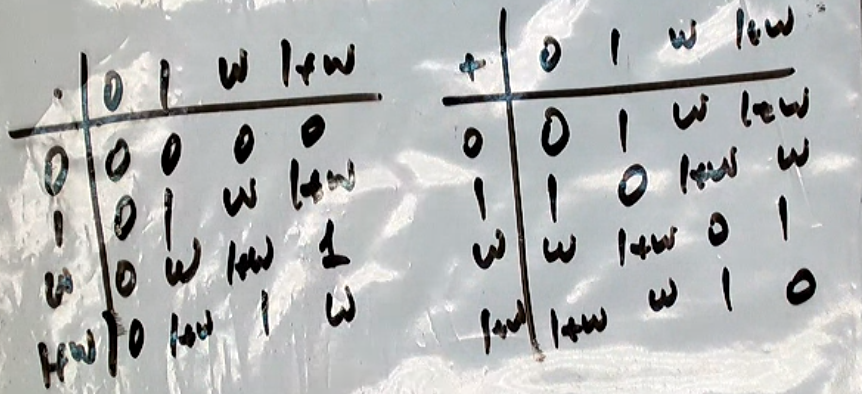 · 0 1 w 1+w
0 0 0 0 0
1 0 1 w 1+w
w 0 w 1+w 1
1+w 0 1+w 1 w
+ 0 1 w 1+w
0 0 1 w 1+w
1 1 0 1+w w
w w 1+w 0 1
1+w 1+w w 1 0